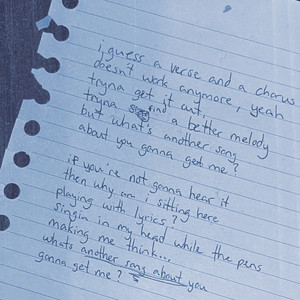 i guess a verse and a chorus
doesn't work anymore, yeah
tryna get it out,
tryna find a better melody
but what's another song
about you gonna get me?
if you're not gonna hear it
then why am i sitting here
playing with lyrics?
singin in my head while the pens
making me think...
whats another song about you
gonna get me?